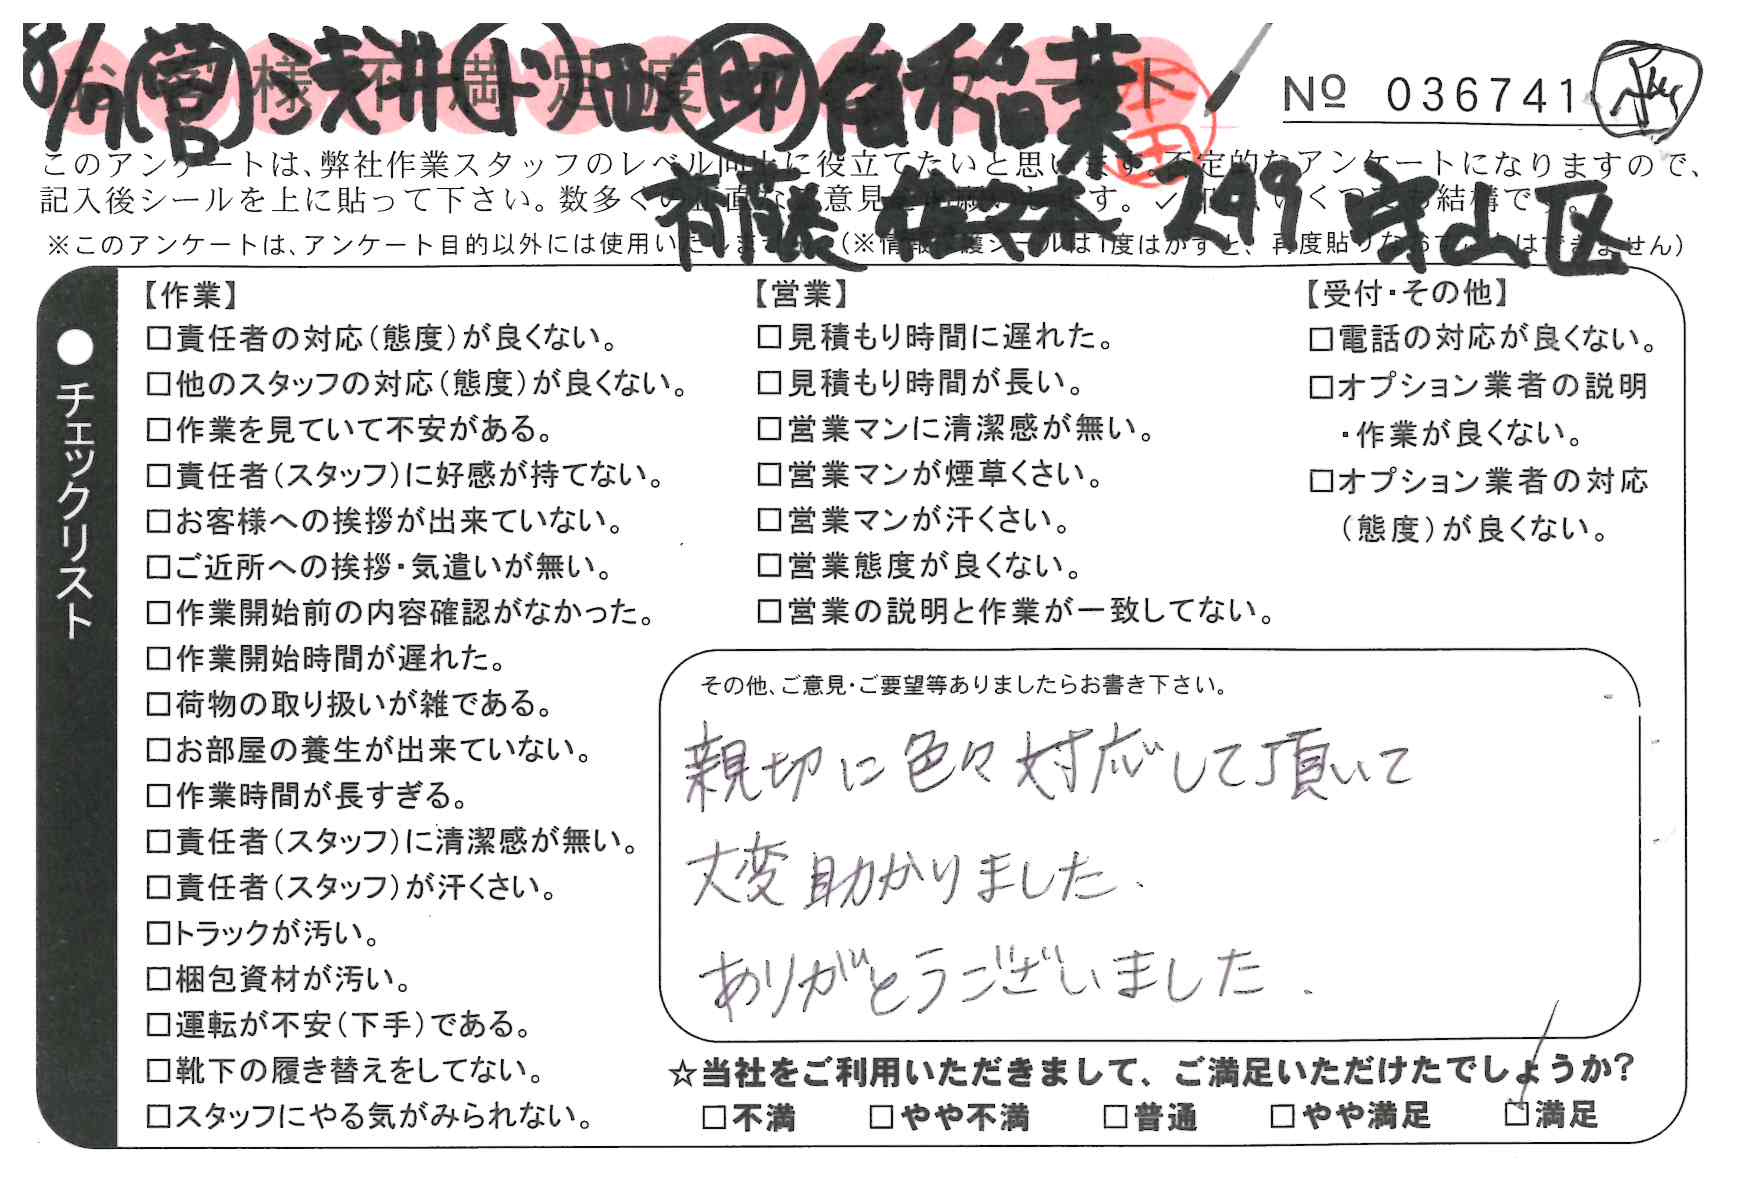 お客様不満足度アンケート
8/9 営 浅井 小西 助 白 稲葉
本田
No 036741
このアンケートは、弊社作業スタッフのレベル向上に役立てたいと思います。否定的なアンケートになりますので、
記入後シールを上に貼って下さい。数多くの正直な意見
す。
結構です。
斉藤 佐々木 299 守山区
※このアンケートは、アンケート目的以外には使用いたしません。(※情報保護シールは1度はがすと、再度貼りなおすことはできません)
●チェックリスト
【作業】
□責任者の対応(態度)が良くない。
□他のスタッフの対応(態度)が良くない。
□作業を見ていて不安がある。
□責任者(スタッフ)に好感が持てない。
□お客様への挨拶が出来ていない。
□ご近所への挨拶・気遣いが無い。
□作業開始前の内容確認がなかった。
□作業開始時間が遅れた。
□荷物の取り扱いが雑である。
□お部屋の養生が出来ていない。
□作業時間が長すぎる。
□責任者(スタッフ)に清潔感が無い。
□責任者(スタッフ)が汗くさい。
□トラックが汚い。
□梱包資材が汚い。
□運転が不安(下手)である。
□靴下の履き替えをしてない。
□スタッフにやる気がみられない。
【営業】
□見積もり時間に遅れた。
□見積もり時間が長い。
□営業マンに清潔感が無い。
□営業マンが煙草くさい。
□営業マンが汗くさい。
□営業態度が良くない。
□営業の説明と作業が一致してない。
【受付・その他】
□電話の対応が良くない。
□オプション業者の説明
・作業が良くない。
□オプション業者の対応
(態度)が良くない。
その他、ご意見・ご要望等ありましたらお書き下さい。
親切に色々対応して頂いて
大変助かりました.
ありがとうございました.
☆当社をご利用いただきまして、ご満足いただけたでしょうか?
□不満 □やや不満 □普通 □やや満足 ☑満足